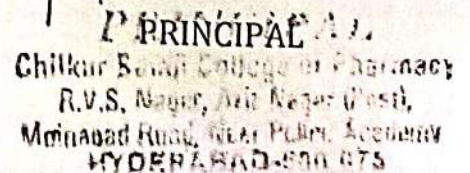 PRINCIPAL
Chilkur Balaji College of Pharmacy
R.V.S. Nagar, Aziz Nagar (Post),
Moinabad Road, Near Police Academy
HYDERABAD-500 075